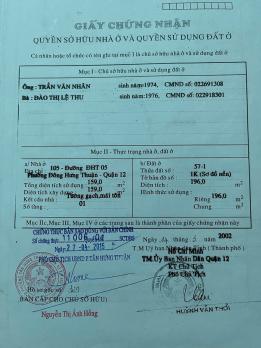 GIẤY CHỨNG NHẬN
QUYỀN SỞ HỮU NHÀ Ở VÀ QUYỀN SỬ DỤNG ĐẤT Ở
Cá nhân hoặc tổ chức có tên ghi tại mục I là chủ sở hữu nhà ở và sử dụng đất ở
Mục I - Chủ sở hữu nhà ở và sử dụng đất ở
Ông : TRẦN VĂN NHÂN sinh năm:1974, CMND số: 022691308
Bà : ĐÀO THỊ LỆ THU sinh năm:1976, CMND số: 022918301
Mục II - Thực trạng nhà ở, đất ở
a/ Nhà ở
105 - Đường ĐHT 05
Phường Đông Hưng Thuận - Quận 12
Tổng diện tích sử dụng 159,0 m²
Diện tích xây dựng 159,0 m²
Kết cấu nhà Tường gạch, mái tôn
Số tầng : 01
b/ Đất ở
57-1
Thửa đất số : 1K (Sơ đồ nền)
Diện tích : 196,0 m²
Hình thức sử dụng :
Riêng 196,0 m²
Chung m²
Mục IIc, Mục III, Mục IV ở các trang sau là thành phần của giấy chứng nhận này
CHỨNG THỰC BẢN SAO ĐÚNG VỚI BẢN CHÍNH
Số chứng thực 11006
Ngày 5 2002
TM.Ủy Ban Nhân Dân Quận 12
KT Chủ Tịch
Phó Chủ Tịch
BẢN CẤP CHO CHỦ SỞ HỮU
Nguyễn Thị Ánh Hồng
HUỲNH VĂN THỚI